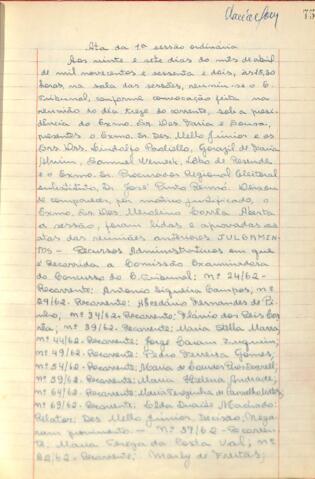 75
Ata da 1ª sessão ordinária
Aos vinte e sete dias do mês de abril
de mil novecentos e sessenta e dois, às 15,30
horas, na sala das sessões, reuniu-se o E.
Tribunal, conforme convocação feita na
reunião do dia treze do corrente, sob a presi-
dência do Exmo. Sr. Des. Faria e Sousa,
presentes o Exmo. Sr. Des. Mello Júnior e os
Drs. Lindolfo Paoliello, Gouzil de Faria
Alvim, Samuel Werneck, Lobo de Resende
e o Exmo. Sr. Procurador Regional Eleitoral
substituto, Dr. José Pinto Rennó. Deixou
de comparecer, por motivo justificado, o
Exmo. Sr. Des. Merolino Corrêa. Aberta
a sessão, foram lidas e aprovadas as
atas das reuniões anteriores. JULGAMEN
TOS - Recursos Administrativos em que
é Recorrida a Comissão Examinadora
do Concurso do E. Tribunal: nº 24/62-
Recorrente: Antonio Siqueira Campos, nº
29/62- Recorrente: Abedário Fernandes de Pi-
nho; nº 34/62- Recorrente: Flávio dos Reis Cor-
rêa; nº 39/62- Recorrente: Maria Stella Marra
nº 44/62- Recorrente: Jorge Caram
nº 49/62- Recorrente: Pedro Ferreira Gomes;
nº 54/62- Recorrente: Maria de Lourdes
nº 59/62- Recorrente: Maria Helena Andrade,
nº 64/62- Recorrente: Maria Terezinha de Carvalho
nº 69/62- Recorrente: Elda Duarte Machado.
Relator: Des. Mello Júnior. Decisão: Nega-
ram provimento. - Nº 37/62- Recorren-
te: Maria Tereza da Costa Val, nº
62/62- Recorrente: Marly de Freitas;